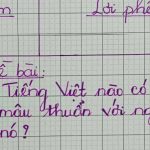 Lời phê
bài:
Tiếng Việt nào có
mâu thuẫn với
nó?